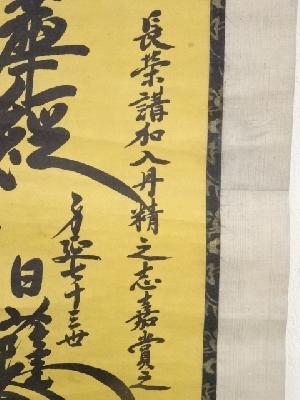 長栄講加入丹精之志嘉賞之
身延七十三世
華経
日蓮